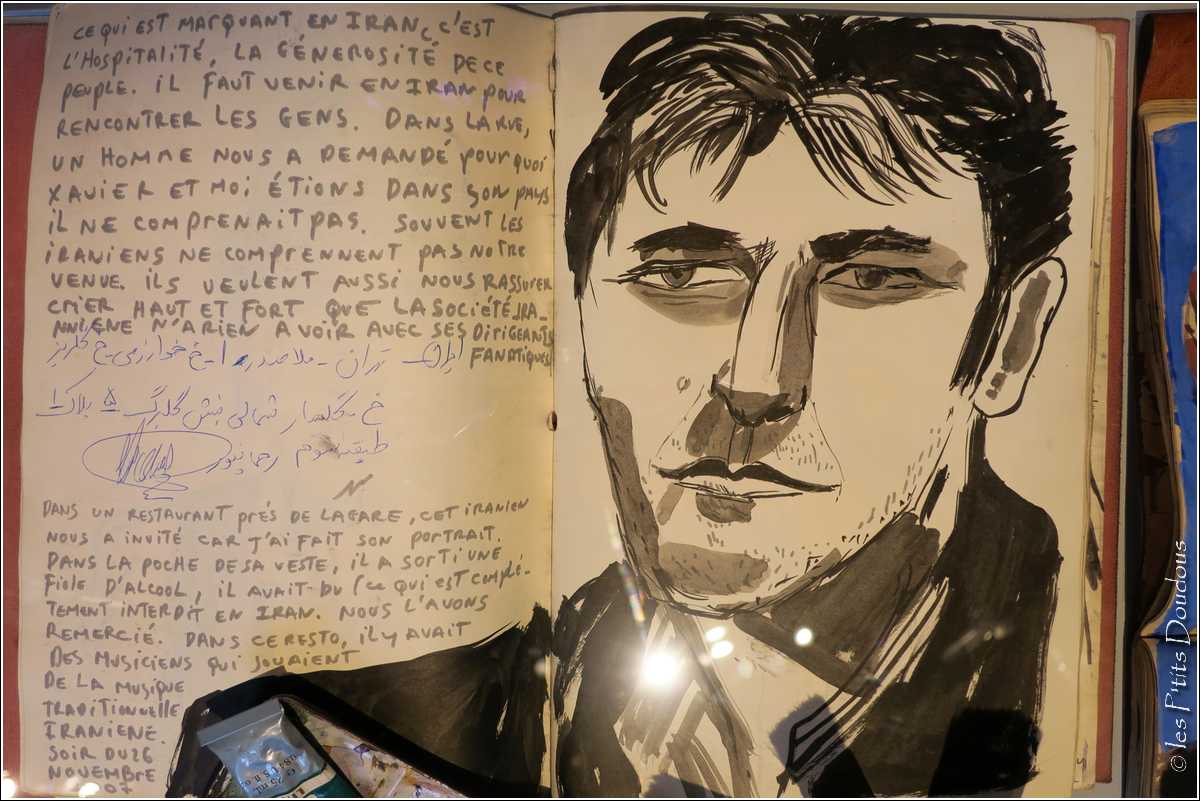 CE QUI EST MARQUANT EN IRAN, C'EST
L'HOSPITALITÉ, LA GÉNEROSITÉ DE CE
PEUPLE. IL FAUT VENIR EN IRAN POUR
RENCONTRER LES GENS. DANS LA RUE,
UN HOMME NOUS A DEMANDÉ POURQUOI
XAVIER ET MOI ÉTIONS DANS SON PAYS
IL NE COMPRENAIT PAS. SOUVENT LES
IRANIENS NE COMPRENNENT PAS NOTRE
VENUE. ILS VEULENT AUSSI NOUS RASSURER
CRIER HAUT ET FORT QUE LA SOCIÉTÉ IRA-
NNIENE N'A RIEN A VOIR AVEC SES DIRIGEANTS
FANATIQUES
ایران تهران - ملاصدرا - خ خوارزمی - خ گلریز
خ شمالی نبش گلبرگ ۵ پلاک ۱
طبقه سوم رحمانپور
DANS UN RESTAURANT PRÉS DE LA GARE, CET IRANIEN
NOUS A INVITÉ CAR J'AI FAIT SON PORTRAIT.
DANS LA POCHE DE SA VESTE, IL A SORTI UNE
FIOLE D'ALCOOL, IL AVAIT BU (CE QUI EST COMPLÉ-
TEMENT INTERDIT EN IRAN. NOUS L'AVONS
REMERCIÉ. DANS CE RESTO, IL Y AVAIT
DES MUSICIENS QUI JOUAIENT
DE LA MUSIQUE
TRADITIONNELLE
IRANIENE.
SOIR DU 26
NOVEMBRE
07
© les P'tits Doudous